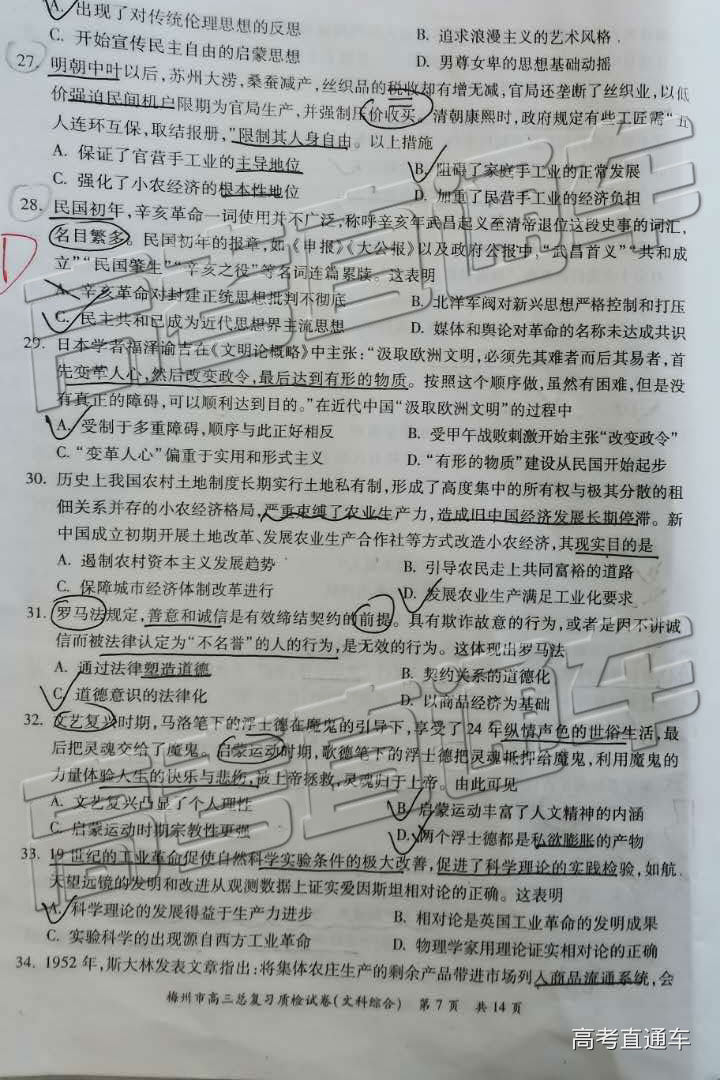 A. 出现了对传统伦理思想的反思
B. 追求浪漫主义的艺术风格
C. 开始宣传民主自由的启蒙思想
D. 男尊女卑的思想基础动摇
27. 明朝中叶以后，苏州大涝，桑蚕减产，丝织品的税收却有增无减，官局还垄断了丝织业，以低
价强迫民间机户限期为官局生产，并强制压价收买。清朝康熙时，政府规定有些工匠需“五
人连环互保，取结报册，”限制其人身自由。以上措施
A. 保证了官营手工业的主导地位
B. 阻碍了家庭手工业的正常发展
C. 强化了小农经济的根本性地位
D. 加重了民营手工业的经济负担
28. 民国初年，辛亥革命一词使用并不广泛，称呼辛亥年武昌起义至清帝退位这段史事的词汇，
名目繁多。民国初年的报章，如《申报》《大公报》以及政府公报中，“武昌首义”“共和成
立”“民国肇生”“辛亥之役”等名词连篇累牍。这表明
A. 辛亥革命对封建正统思想批判不彻底
B. 北洋军阀对新兴思想严格控制和打压
C. 民主共和已成为近代思想界主流思想
D. 媒体和舆论对革命的名称未达成共识
29. 日本学者福泽谕吉在《文明论概略》中主张：“汲取欧洲文明，必须先其难者而后其易者，首
先变革人心，然后改变政令，最后达到有形的物质。按照这个顺序做，虽然有困难，但是没
有真正的障碍，可以顺利达到目的。”在近代中国“汲取欧洲文明”的过程中
A. 受制于多重障碍，顺序与此正好相反
B. 受甲午战败刺激开始主张“改变政令”
C. “变革人心”偏重于实用和形式主义
D. “有形的物质”建设从民国开始起步
30. 历史上我国农村土地制度长期实行土地私有制，形成了高度集中的所有权与极其分散的租
佃关系并存的小农经济格局，严重束缚了农业生产力，造成旧中国经济发展长期停滞。新
中国成立初期开展土地改革、发展农业生产合作社等方式改造小农经济，其现实目的是
A. 遏制农村资本主义发展趋势
B. 引导农民走上共同富裕的道路
C. 保障城市经济体制改革进行
D. 发展农业生产满足工业化要求
31. 罗马法规定，善意和诚信是有效缔结契约的前提。具有欺诈故意的行为，或者是因不讲诚
信而被法律认定为“不名誉”的人的行为，是无效的行为。这体现出罗马法
A. 通过法律塑造道德
B. 契约关系的道德化
C. 道德意识的法律化
D. 以商品经济为基础
32. 文艺复兴时期，马洛笔下的浮士德在魔鬼的引导下，享受了 24 年纵情声色的世俗生活，最
后把灵魂交给了魔鬼。启蒙运动时期，歌德笔下的浮士德把灵魂抵押给魔鬼，利用魔鬼的
力量体验人生的快乐与悲伤，被上帝拯救，灵魂归于上帝。由此可见
A. 文艺复兴凸显了个人理性
B. 启蒙运动丰富了人文精神的内涵
C. 启蒙运动时期宗教性更强
D. 两个浮士德都是私欲膨胀的产物
33. 19 世纪的工业革命促使自然科学实验条件的极大改善，促进了科学理论的实践检验，如航
天望远镜的发明和改进从观测数据上证实爱因斯坦相对论的正确。这表明
A. 科学理论的发展得益于生产力进步
B. 相对论是英国工业革命的发明成果
C. 实验科学的出现源自西方工业革命
D. 物理学家用理论证实相对论的正确
34. 1952 年，斯大林发表文章指出：将集体农庄生产的剩余产品带进市场列入商品流通系统，会
梅州市高三总复习质检试卷(文科综合) 第 7 页 共 14 页
高考直通车
高考直通车
高考直通车